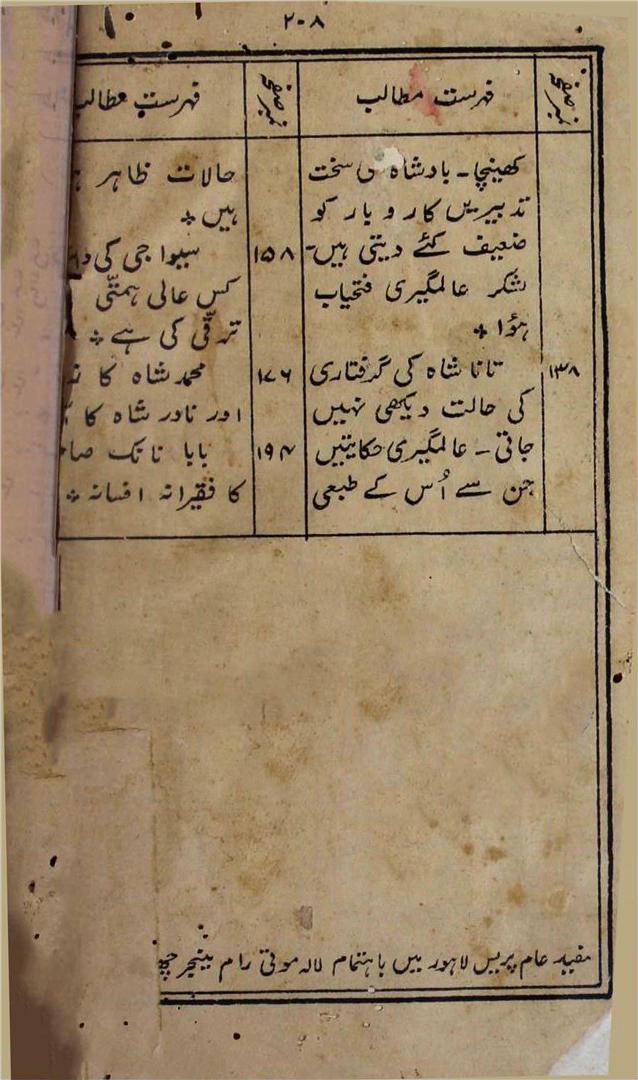 ۲۰۸
نمبر صفحہ
فہرست مطالب
نمبر صفحہ
فہرست مطالب
کھینچا۔ بادشاہ کی سخت
تدبیریں کار و بار کو
ضعیف کئے دیتی ہیں۔
لشکر عالمگیری فتحیاب
ہؤا ٭
۱۳۸
تانا شاہ کی گرفتاری
کی حالت دیکھی نہیں
جاتی۔ عالمگیری حکایتیں
جن سے اُس کے طبعی
حالات ظاہر
ہیں ٭
۱۵۸
سیوا جی کی
کس عالی ہمتی
ترقی کی ہے ٭
۱۷۶
محمد شاہ کا
اور نادر شاہ کا
۱۹۴
بابا نانک
کا فقیرانہ افسانہ ٭
مفید عام پریس لاہور میں باہتمام لالہ موتی رام مینیجر